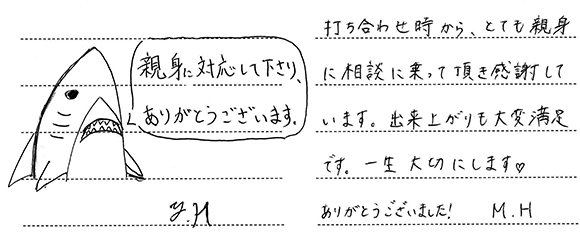 親身に対応して下さり、
ありがとうございます。
Y.H
打ち合わせ時から、とても親身
に相談に乗って頂き感謝して
います。出来上がりも大変満足
です。一生大切にします♡
ありがとうございました! M.H